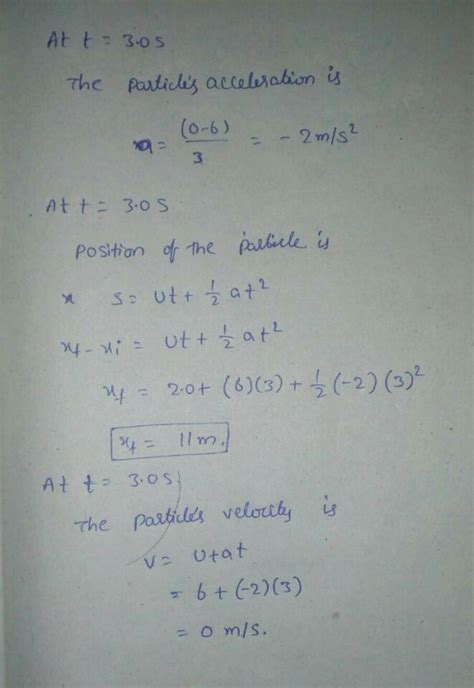 At t = 3.0 s
The particle's acceleration is
a = (0-6)/3 = - 2 m/s²
At t = 3.0 s
Position of the particle is
s = ut + 1/2 at²
xf - xi = ut + 1/2 at²
xf = 2.0 + (6)(3) + 1/2 (-2) (3)²
xf = 11 m.
At t = 3.0 s
The particle's velocity is
v = u+at
= 6 + (-2)(3)
= 0 m/s.